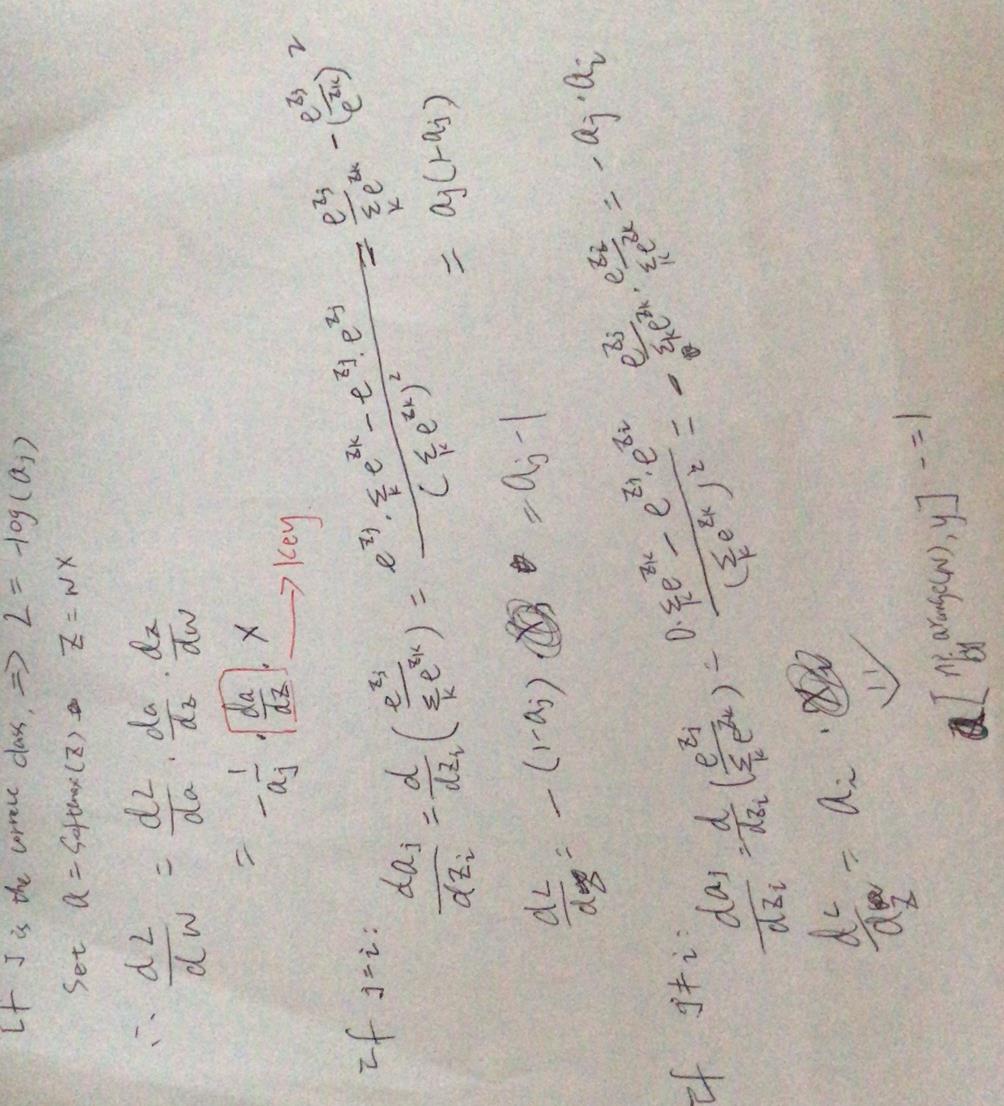 If J is the correct class, => L = -log(aj)
Set a = Softmax(Z) Z = WX
∴ dL/dW = dL/da · da/dz · dz/dw
= -1/aj · da/dz · X → key
If j=i: daj/dzi = d/dzi (e^zj / Σk e^zk) = (e^zj · Σk e^zk - e^zj · e^zj) / (Σk e^zk)^2 = e^zj / Σk e^zk - (e^zj / e^zk)^2
= aj(1-aj)
dL/dz = -(1-aj) = aj-1
If j≠i: daj/dzi = d/dzi (e^zj / Σk e^zk) = (0·Σk e^zk - e^zj · e^zi) / (Σk e^zk)^2 = - e^zj / Σk e^zk · e^zi / Σk e^zk = -aj·ai
dL/dz = ai ·
a[np.arange(N), y] -= 1